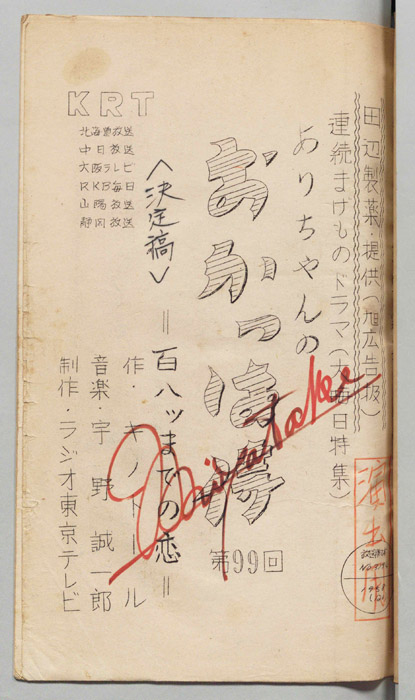 田辺製薬・提供(旭広告扱)
連続まけものドラマ(大晦日特集)
ありちゃんの
おかっぱ侍
第99回
=百八ツまでの恋=
<決定稿>
作・キノトール
音楽・宇野誠一郎
制作・ラジオ東京テレビ
KRT
北海道放送
中日放送
大阪テレビ
RKB毎日
山陽放送
静岡放送